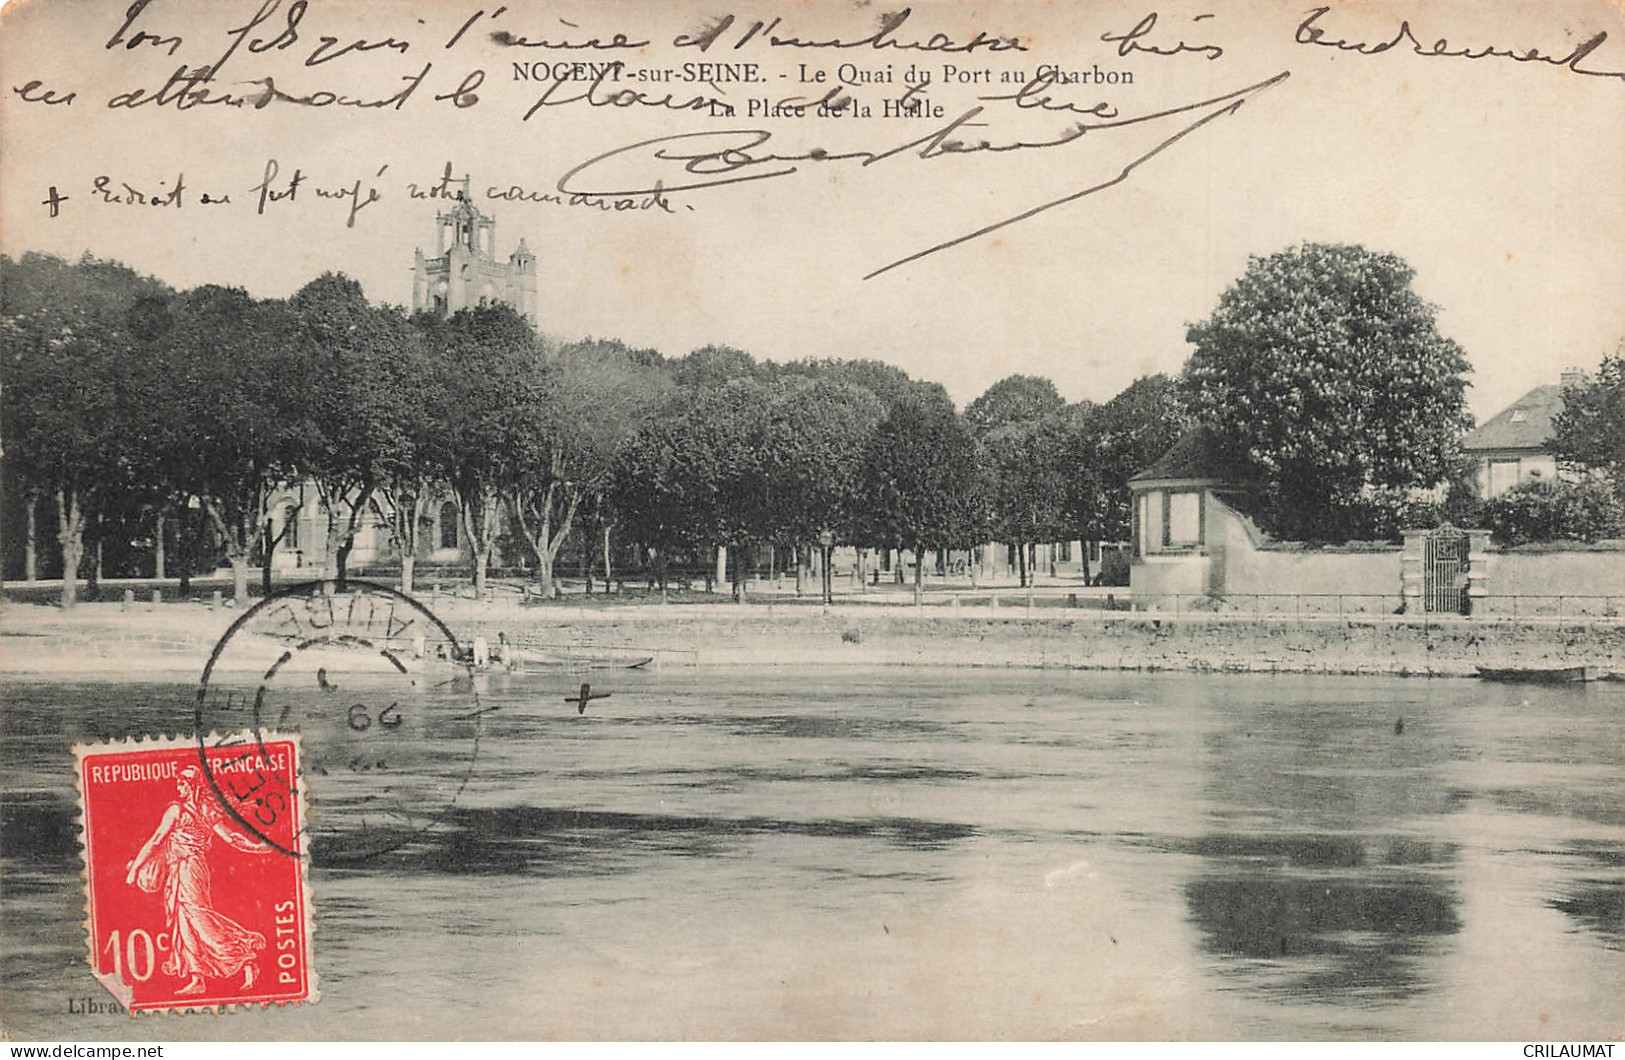 Ton fils qui l'aime et l'embrasse bien tendrement
en attendant le plaisir de te lire
NOGENT-sur-SEINE. - Le Quai du Port au Charbon
La Place de la Halle
+ Endroit ou fut noyé notre camarade.
+
AUBE
SEINE
29
REPUBLIQUE FRANÇAISE
10c
POSTES
Librai
CRILAUMAT